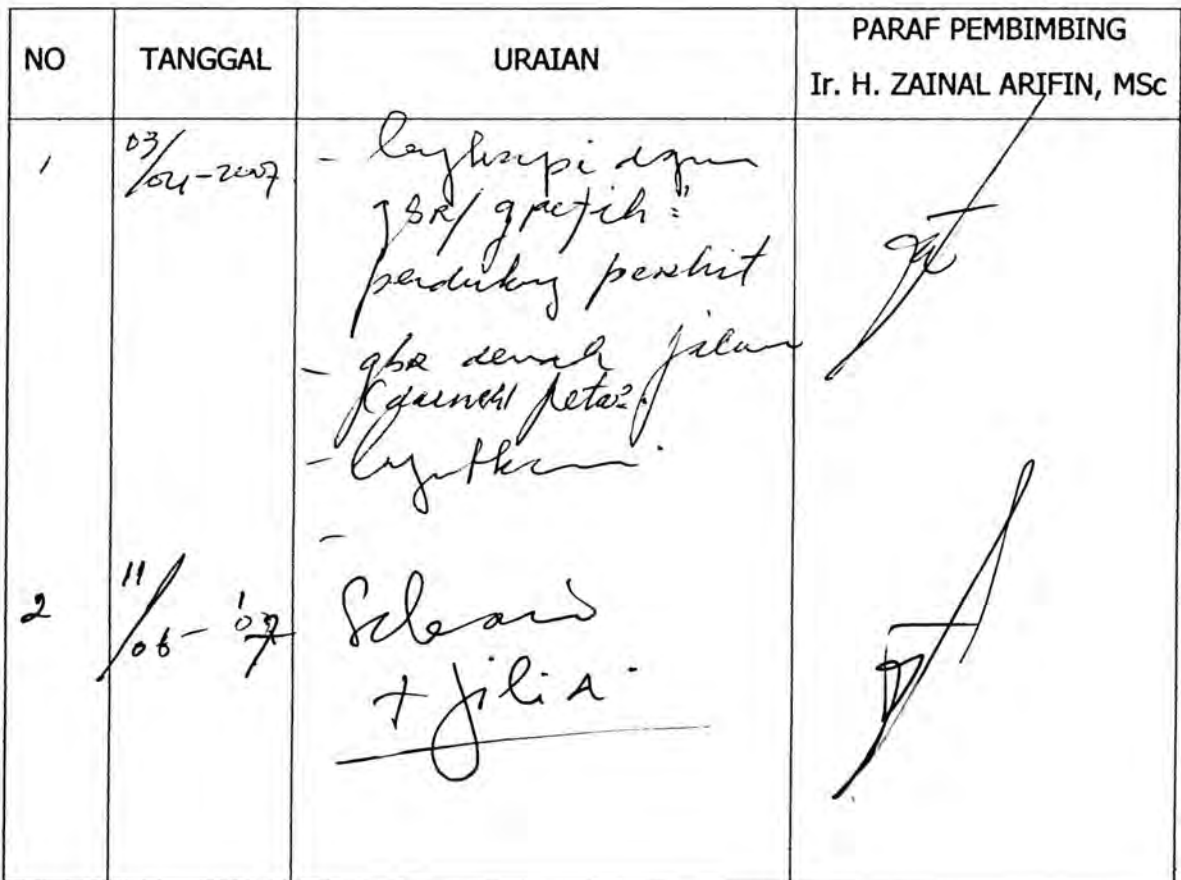 NO TANGGAL URAIAN PARAF PEMBIMBING
Ir. H. ZAINAL ARIFIN, MSc
1 03/04-2007 - lengkapi dgn
gbr/grafik²
pendukung
- gbr denah jalan
- lanjutkan
-
2 11/06-'07 Selesai
+ jilid